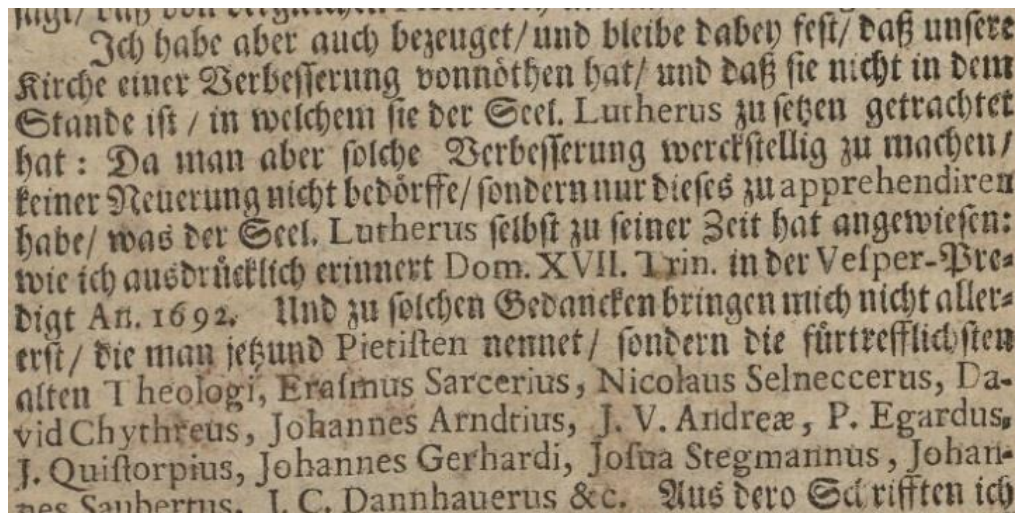 Ich habe aber auch bezeuget/ und bleibe dabey fest/ daß unsere
Kirche einer Verbesserung vonnöthen hat/ und daß sie nicht in dem
Stande ist / in welchem sie der Seel. Lutherus zu setzen getrachtet
hat : Da man aber solche Verbesserung werckstellig zu machen/
keiner Neuerung nicht bedörffe/ sondern nur dieses zu apprehendiren
habe/ was der Seel. Lutherus selbst zu seiner Zeit hat angewiesen:
wie ich ausdrücklich erinnert Dom. XVII. Trin. in der Vesper-Pre-
digt An. 1692. Und zu solchen Gedancken bringen mich nicht aller-
erst/ die man jetzund Pietisten nennet/ sondern die fürtrefflichsten
alten Theologi, Erasmus Sarcerius, Nicolaus Selneccerus, Da-
vid Chythreus, Johannes Arndtius, J. V. Andreæ, P. Egardus,
J. Quistorpius, Johannes Gerhardi, Josua Stegmannus, Johan-
nes Saubertus, J. C. Dannhauerus &c. Aus dero Schrifften ich